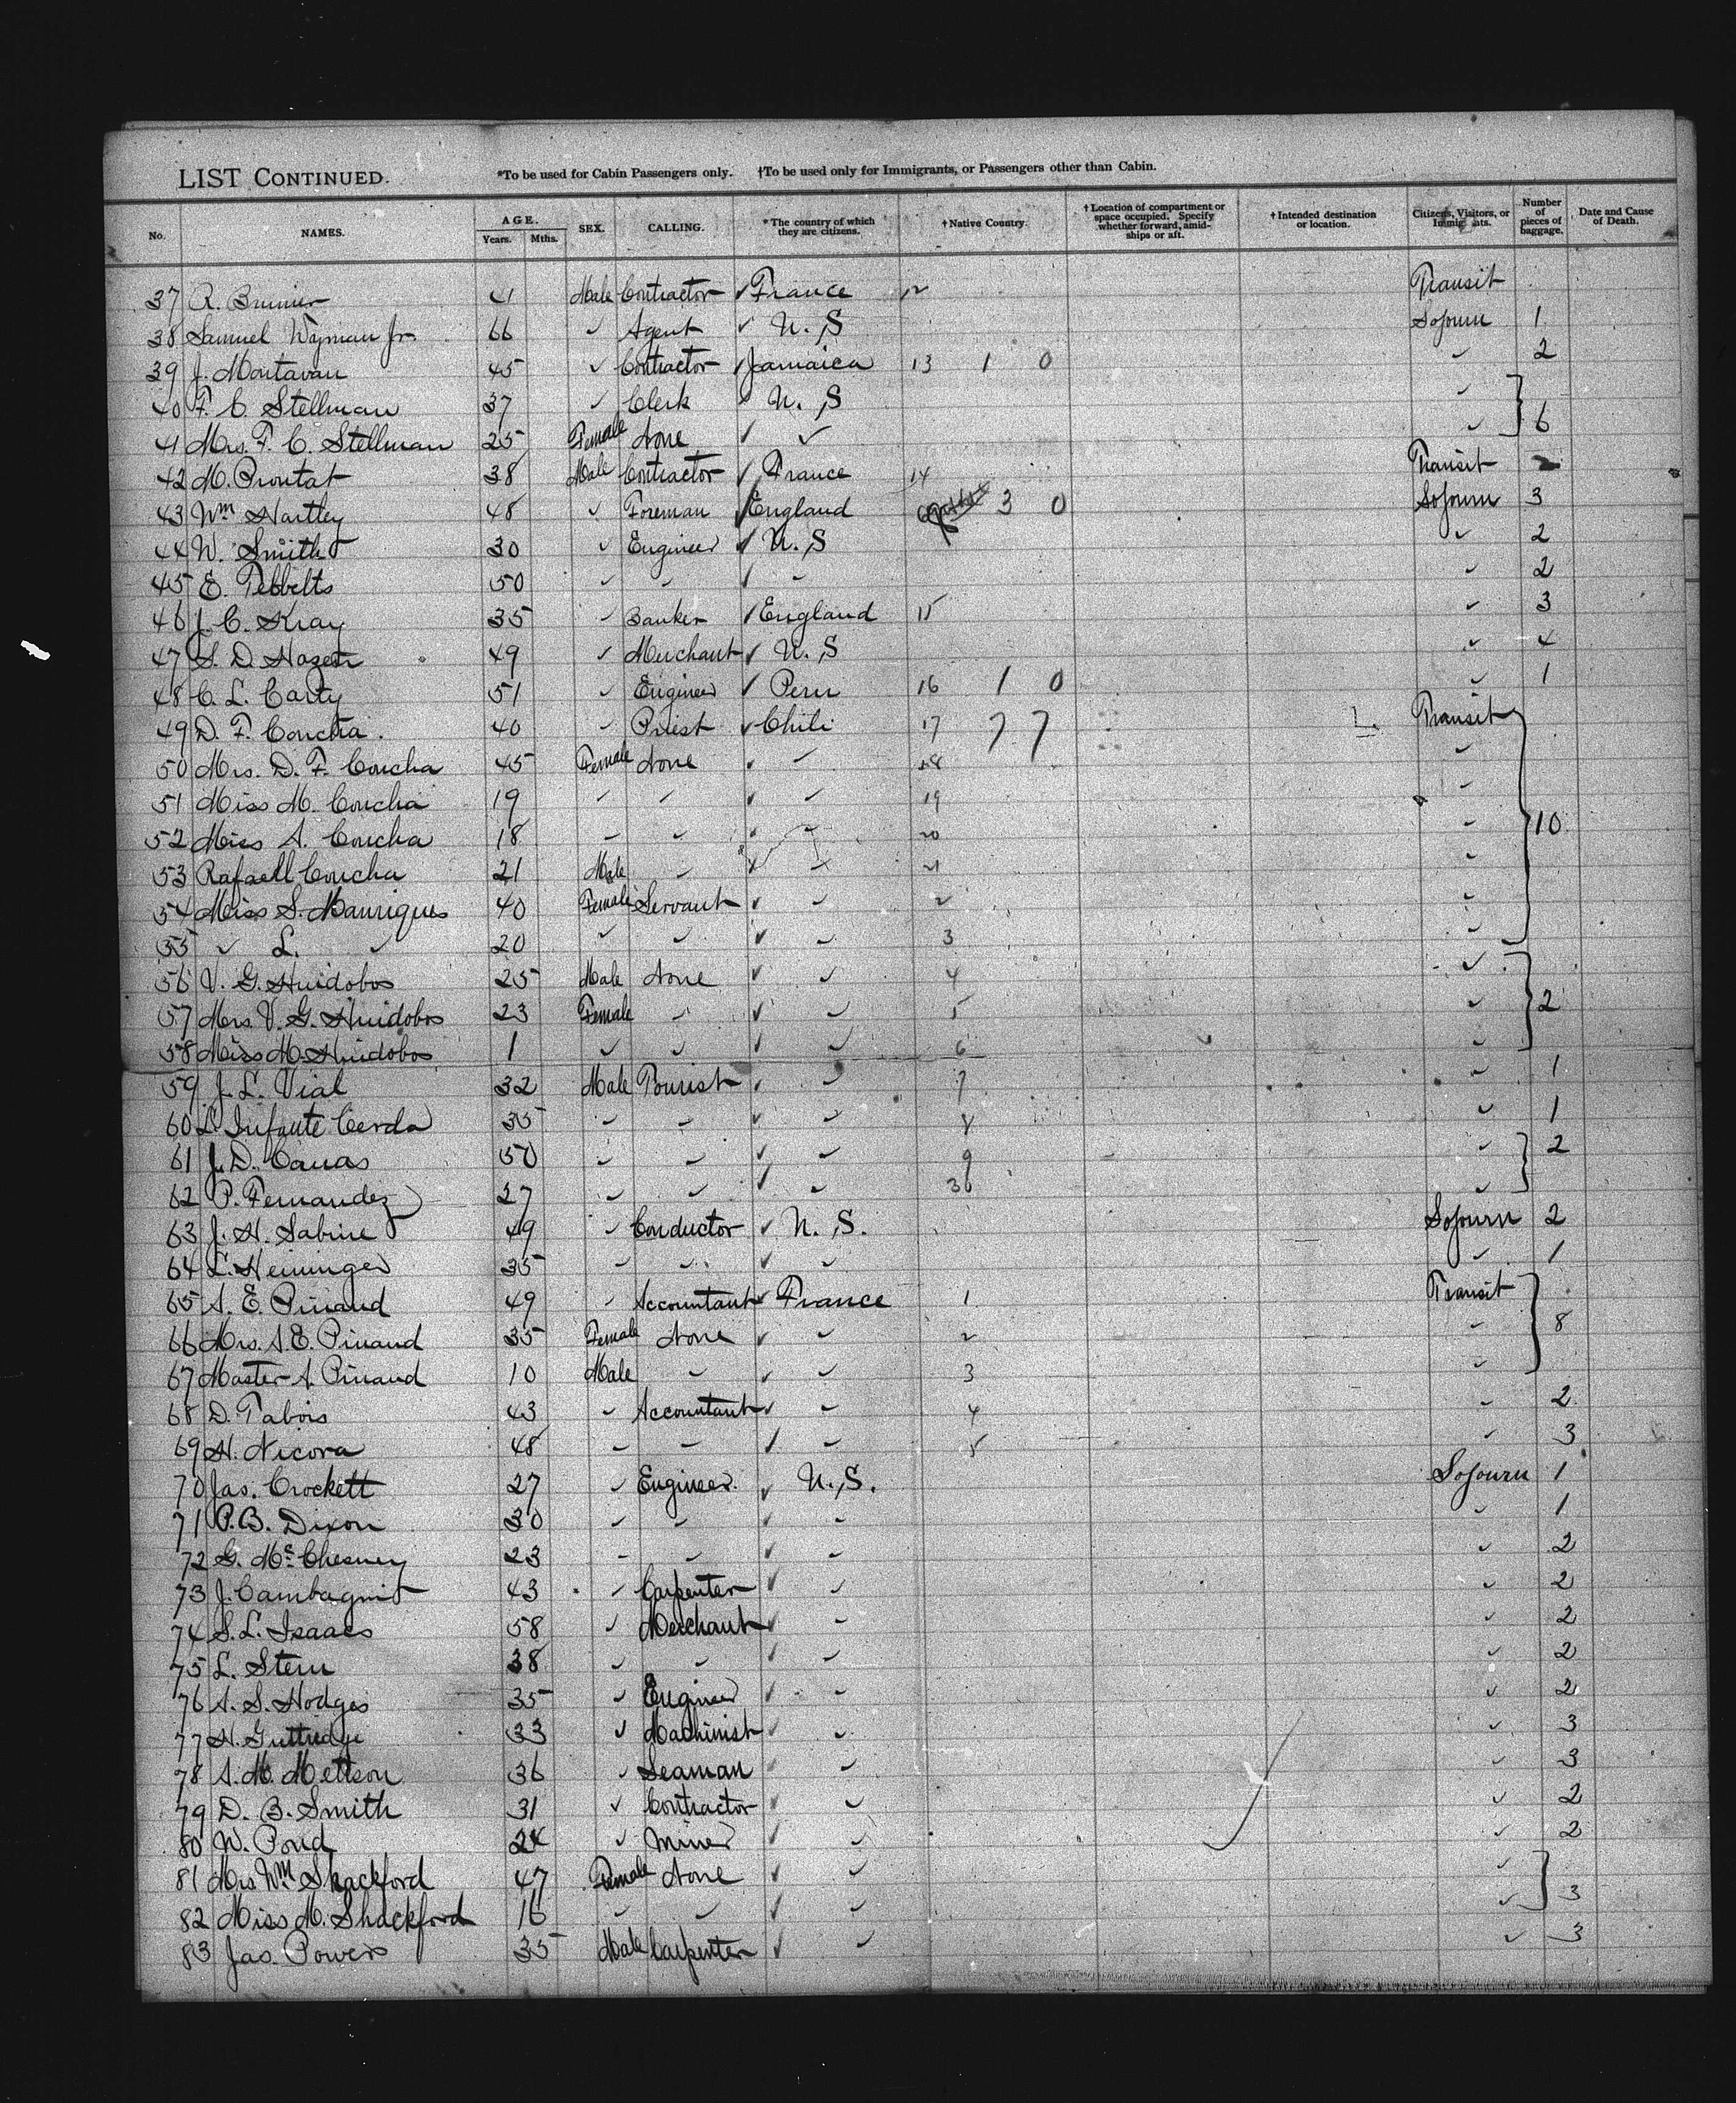 LIST CONTINUED. *To be used for Cabin Passengers only. †To be used only for Immigrants, or Passengers other than Cabin.
No. NAMES. AGE. Years. Mths. SEX. CALLING. *The country of which they are citizens. †Native Country. †Location of compartment or space occupied. Specify whether forward, amidships or aft. †Intended destination or location. Citizens, Visitors, or Immig ats. Number of pieces of baggage. Date and Cause of Death.
37 R. 41 Male Contractor ✓ France 12 Transit
38 Samuel Wyman Jr. 66 ✓ Agent ✓ U.S Sojourn 1
39 J. Montavan 45 ✓ Contractor ✓ Jamaica 13 1 0 ✓ 2
40 F. C. Stellman 37 ✓ Clerk ✓ U.S ✓
41 Mrs. F. C. Stellman 25 Female None ✓ ✓ ✓ 6
42 M. Prontat 38 Male Contractor ✓ France 14 Transit
43 Wm Hartley 48 ✓ Foreman ✓ England 3 0 Sojourn 3
44 W. Smith 30 ✓ Engineer ✓ U.S ✓ 2
45 E. Tebbelts 50 ✓ ✓ ✓ ✓ ✓ 2
46 J. C. Kray 35 ✓ Banker ✓ England 15 ✓ 3
47 S. D. Hazen 49 ✓ Merchant ✓ U.S ✓ 4
48 C. L. Carty 51 ✓ Engineer ✓ Peru 16 1 0 ✓ 1
49 D. F. Concha. 40 ✓ Priest ✓ Chili 17 7 7 Transit
50 Mrs. D. F. Concha 45 Female None ✓ ✓ 18 ✓
51 Miss M. Concha 19 ✓ ✓ ✓ ✓ 19 ✓
52 Miss A. Concha 18 ✓ ✓ ✓ ✓ 20 ✓ 10
53 Rafaell Concha 21 Male ✓ ✓ ✓ 21 ✓
54 Miss S. Manriques 40 Female Servant ✓ ✓ 2 ✓
55 ✓ L. ✓ 20 ✓ ✓ ✓ ✓ 3 ✓
56 V. G. Huidobos 25 Male None ✓ ✓ 4 ✓
57 Mrs. V. G. Huidobos 23 Female ✓ ✓ ✓ 5 ✓ 2
58 Miss M. Huidobos 1 ✓ ✓ ✓ ✓ 6 ✓
59 J. L. Vial 32 Male Tourist ✓ ✓ 7 ✓ 1
60 L. Infante Cerda 35 ✓ ✓ ✓ ✓ 8 ✓ 1
61 J. D. Canas 50 ✓ ✓ ✓ ✓ 9 ✓ 2
62 P. Fernandez 27 ✓ ✓ ✓ ✓ 30 ✓
63 J. H. Sabine 49 ✓ Conductor ✓ U.S. Sojourn 2
64 L. Heininger 35 ✓ ✓ ✓ ✓ ✓ 1
65 A. E. Pinaud 49 ✓ Accountant ✓ France 1 Transit
66 Mrs. A. E. Pinaud 35 Female None ✓ ✓ 2 ✓ 8
67 Master A. Pinaud 10 Male ✓ ✓ ✓ 3 ✓
68 D. Tabois 43 ✓ Accountant ✓ ✓ 4 ✓ 2
69 H. Nicora 48 ✓ ✓ ✓ ✓ 5 ✓ 3
70 Jas. Crockett 27 ✓ Engineer. ✓ U.S. Sojourn 1
71 P. B. Dixon 30 ✓ ✓ ✓ ✓ ✓ 1
72 G. McChesney 23 ✓ ✓ ✓ ✓ ✓ 2
73 J. 43 ✓ Carpenter ✓ ✓ ✓ 2
74 S. L. Isaacs 58 ✓ Merchant ✓ ✓ ✓ 2
75 L. Stern 38 ✓ ✓ ✓ ✓ ✓ 2
76 A. S. Hodges 35 ✓ Engineer ✓ ✓ ✓ 2
77 H. Guttridge 33 ✓ Machinist ✓ ✓ ✓ 3
78 A. M. Mettson 36 ✓ Seaman ✓ ✓ ✓ 3
79 D. B. Smith 31 ✓ Contractor ✓ ✓ ✓ 2
80 W. Pond 24 ✓ Miner ✓ ✓ ✓ 2
81 Mrs Wm Shackford 47 Female None ✓ ✓ ✓
82 Miss M. Shackford 16 ✓ ✓ ✓ ✓ ✓ 3
83 Jas. Powers 35 Male Carpenter ✓ ✓ ✓ 3